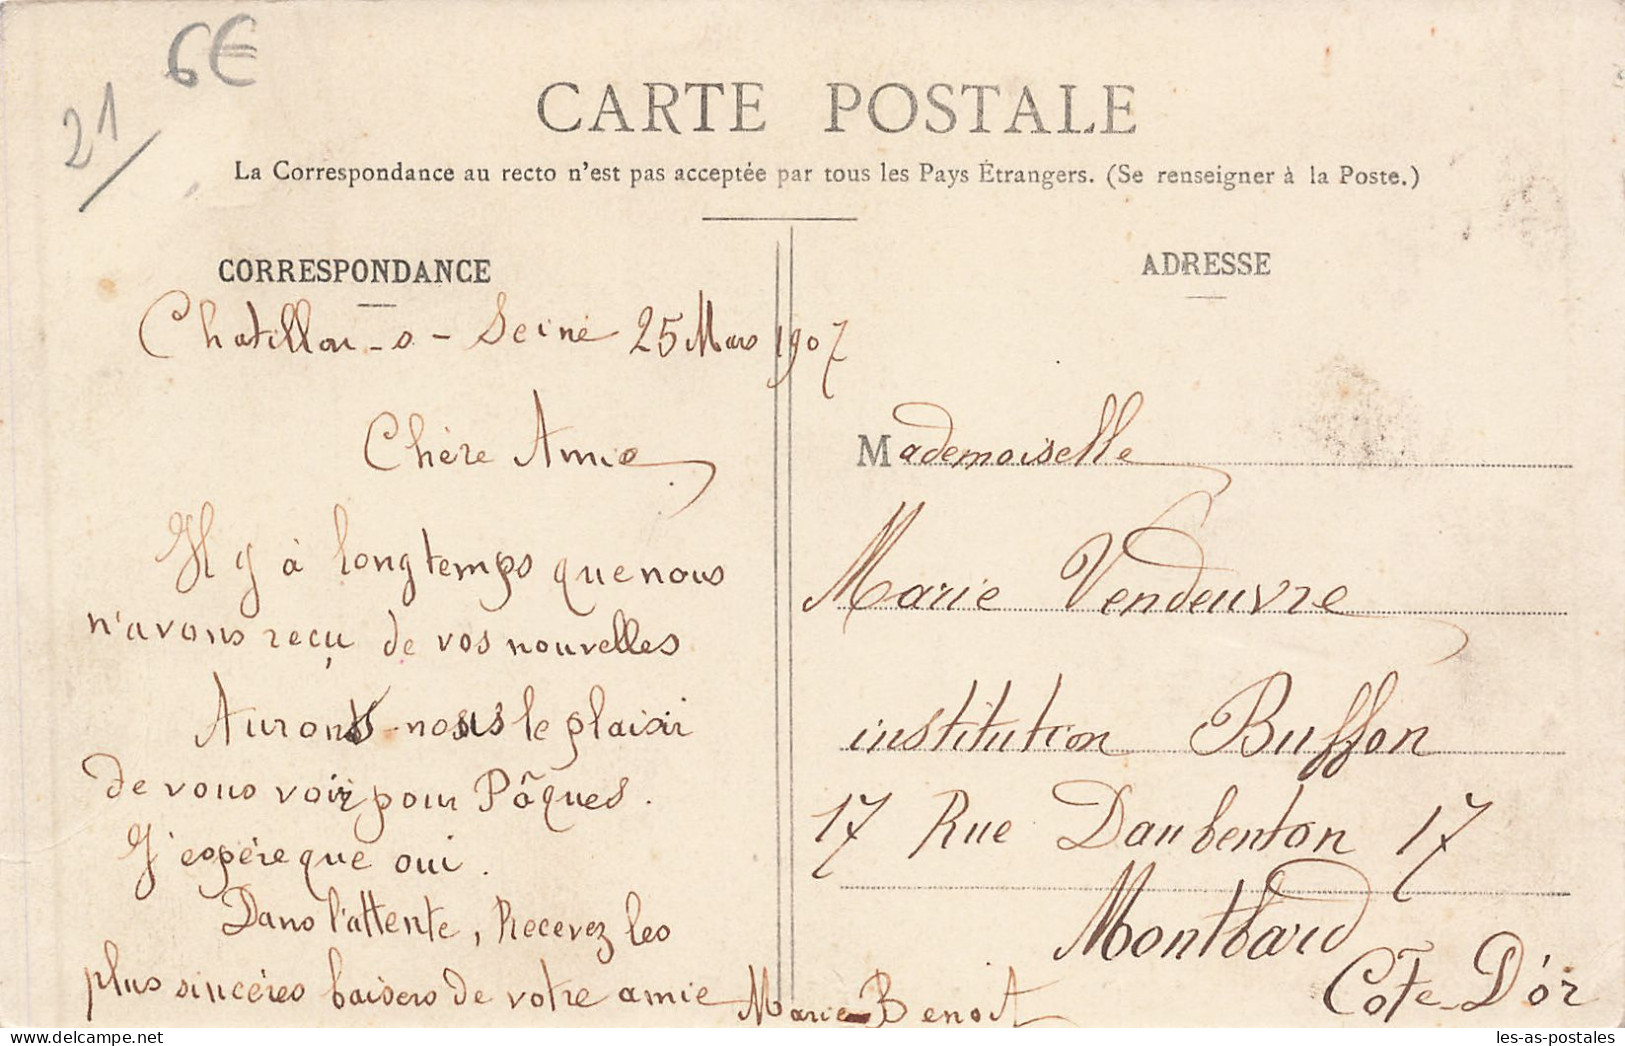 6€
21
CARTE POSTALE
La Correspondance au recto n'est pas acceptée par tous les Pays Étrangers. (Se renseigner à la Poste.)
CORRESPONDANCE
Chatillon-s-Seine 25 Mars 1907
Chère Amie
Il y à longtemps que nous
n'avons reçu de vos nouvelles
Aurons-nous le plaisir
de vous voir pour Pâques.
J'espère que oui.
Dans l'attente, Recevez les
plus sincéres baisers de votre amie Marie Benoit
ADRESSE
Mademoiselle
Marie Vendeuvre
institution Buffon
17 Rue Daubenton 17
Montbard
Côte-D'or
les-as-postales